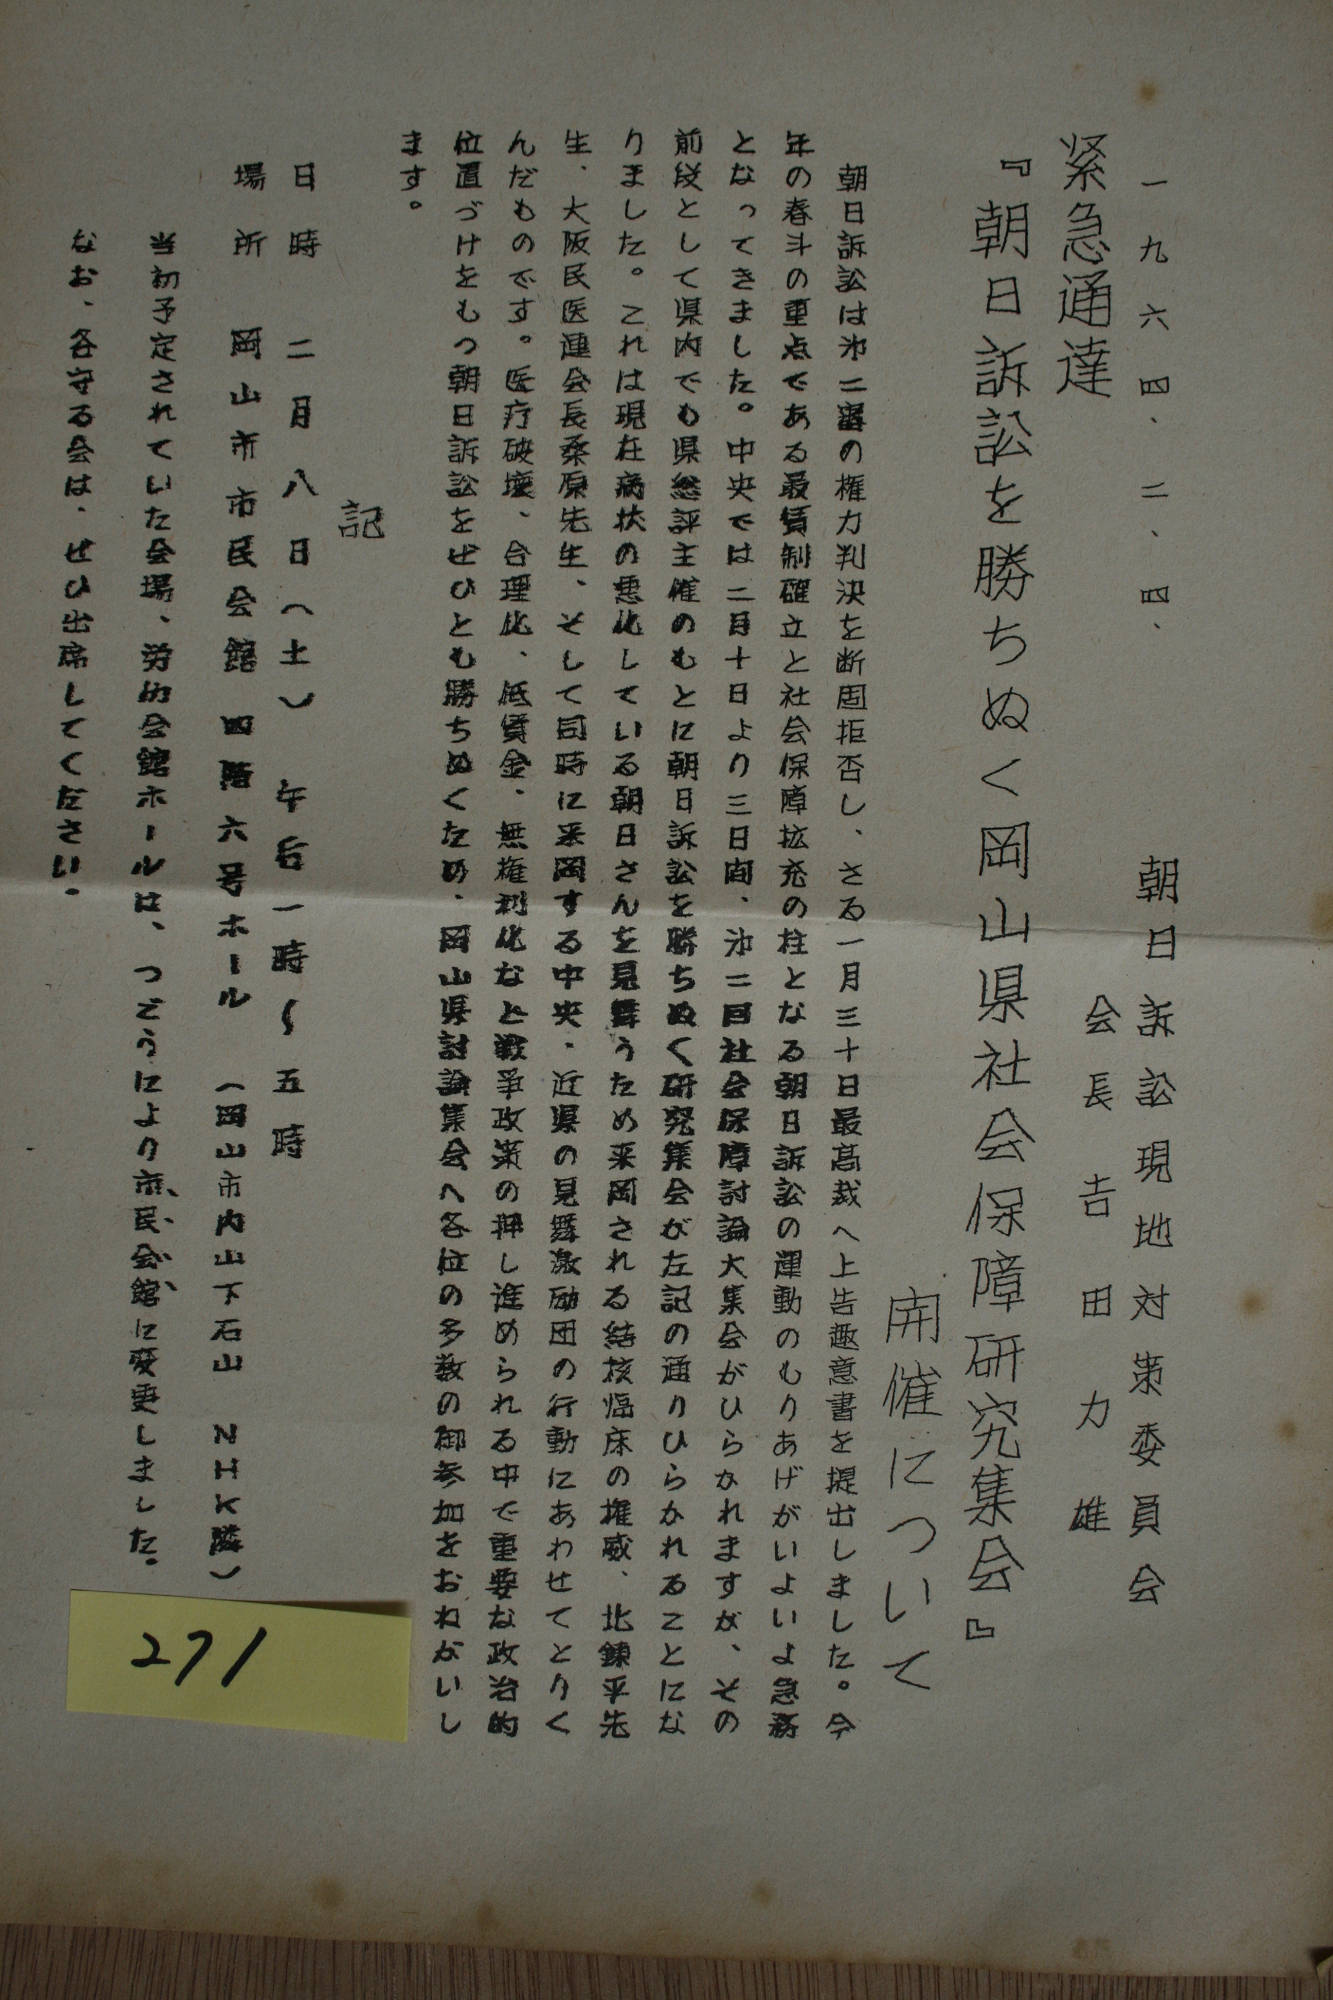 一九六四、二、四、
朝日訴訟現地対策委員会
会長 吉田力雄
緊急通達
『朝日訴訟を勝ちぬく岡山県社会保障研究集会』
開催について
朝日訴訟は㐧二審の権力判決を断固拒否し、さる一月三十日最高裁へ上告趣意書を提出しました。今
年の春斗の重点である最賃制確立と社会保障拡充の柱となる朝日訴訟の運動のもりあげがいよいよ急務
となってきました。中央では二月十日より三日間、㐧二回社会保障討論大集会がひらかれますが、その
前段として県内でも県総評主催のもとに朝日訴訟を勝ちぬく研究集会が左記の通りひらかれることにな
りました。これは現在病状の悪化している朝日さんを見舞うため来岡される結核臨床の権威、北錬平先
生、大阪民医連会長桑原先生、そして同時に来岡する中央、近県の見舞激励団の行動にあわせてとりく
んだものです。医疗破壊、合理化、低賃金、無権利化など戦争政策の押し進められる中で重要な政治的
位置づけをもつ朝日訴訟をぜひとも勝ちぬくため、岡山県討論集会へ各位の多数の御参加をおねがいし
ます。
記
日時 二月八日(土) 午后一時~五時
場所 岡山市市民会館 四階六号ホール (岡山市内山下石山 NHK隣)
当初予定されていた会場、労仂会館ホールは、つごうにより市民会館に変更しました。
なお、各守る会は、ぜひ出席してください。
271